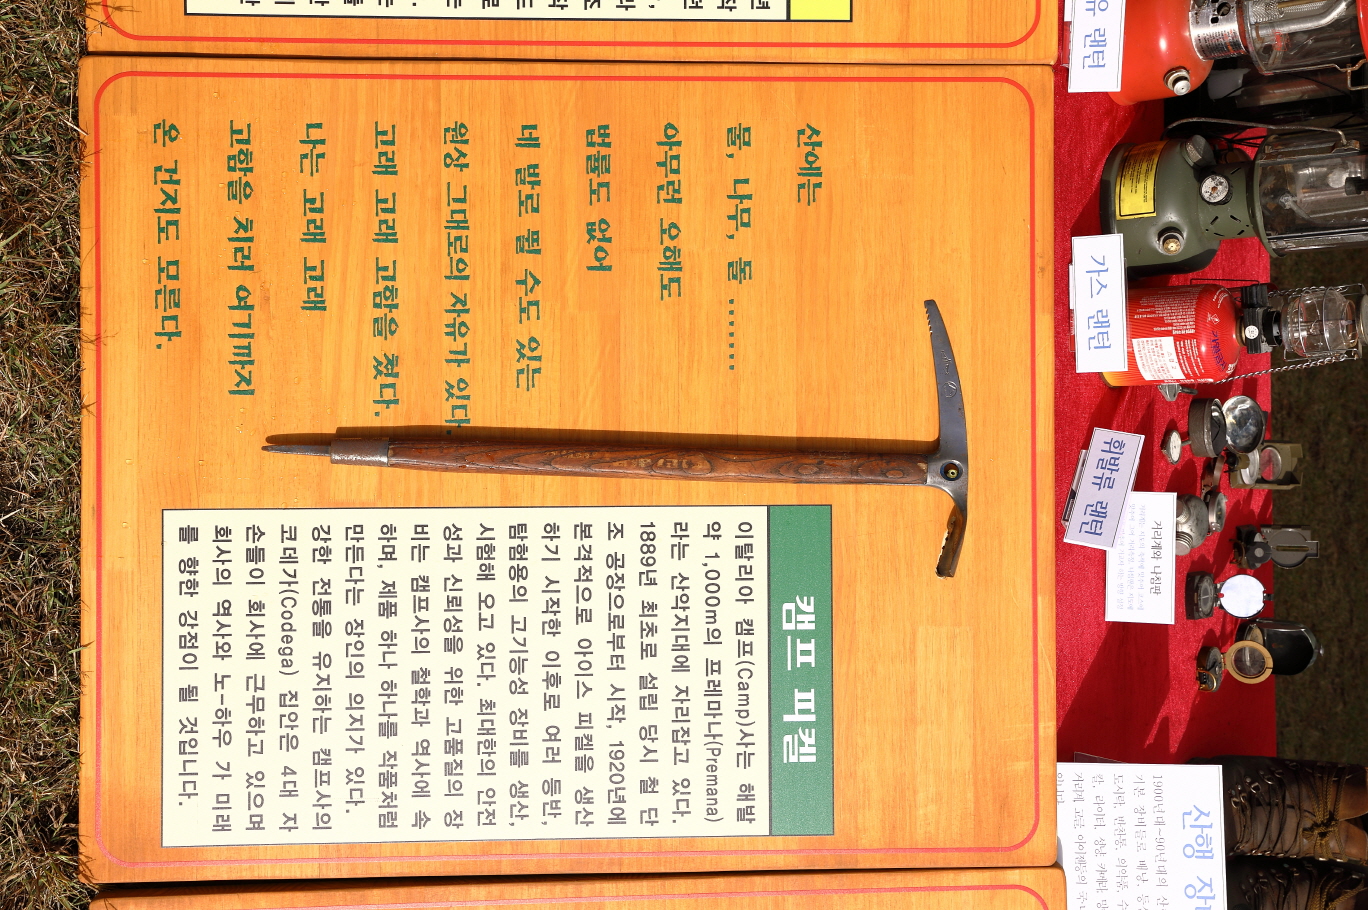 산에는
물, 나무, 돌 ........
아무런 오해도
법률도 없어
네 발로 뛸 수도 있는
원상 그대로의 자유가 있다.
고래 고래 고함을 쳤다.
나는 고래 고래
고함을 치러 여기까지
온 건지도 모른다.
캠프 피켈
이탈리아 캠프(Camp)사는 해발
약 1,000m의 프레마나(Premana)
라는 산악지대에 자리잡고 있다.
1889년 최초로 설립 당시 철 단
조 공장으로부터 시작, 1920년에
본격적으로 아이스 피켈을 생산
하기 시작한 이후로 여러 등반,
탐험용의 고기능성 장비를 생산,
시험해 오고 있다. 최대한의 안전
성과 신뢰성을 위한 고품질의 장
비는 캠프사의 철학과 역사에 속
하며, 제품 하나 하나를 작품처럼
만든다는 장인의 의지가 있다.
강한 전통을 유지하는 캠프사의
코데가(Codega) 집안은 4대 자
손들이 회사에 근무하고 있으며
회사의 역사와 노-하우 가 미래
를 향한 강점이 될 것입니다.
유 랜턴
가스 랜턴
휘발유 랜턴
거리계와 나침판
산행 장
1900년대~90년대의 산
기본 장비들로 배낭, 등
도시락, 반찬통, 의약품, 수